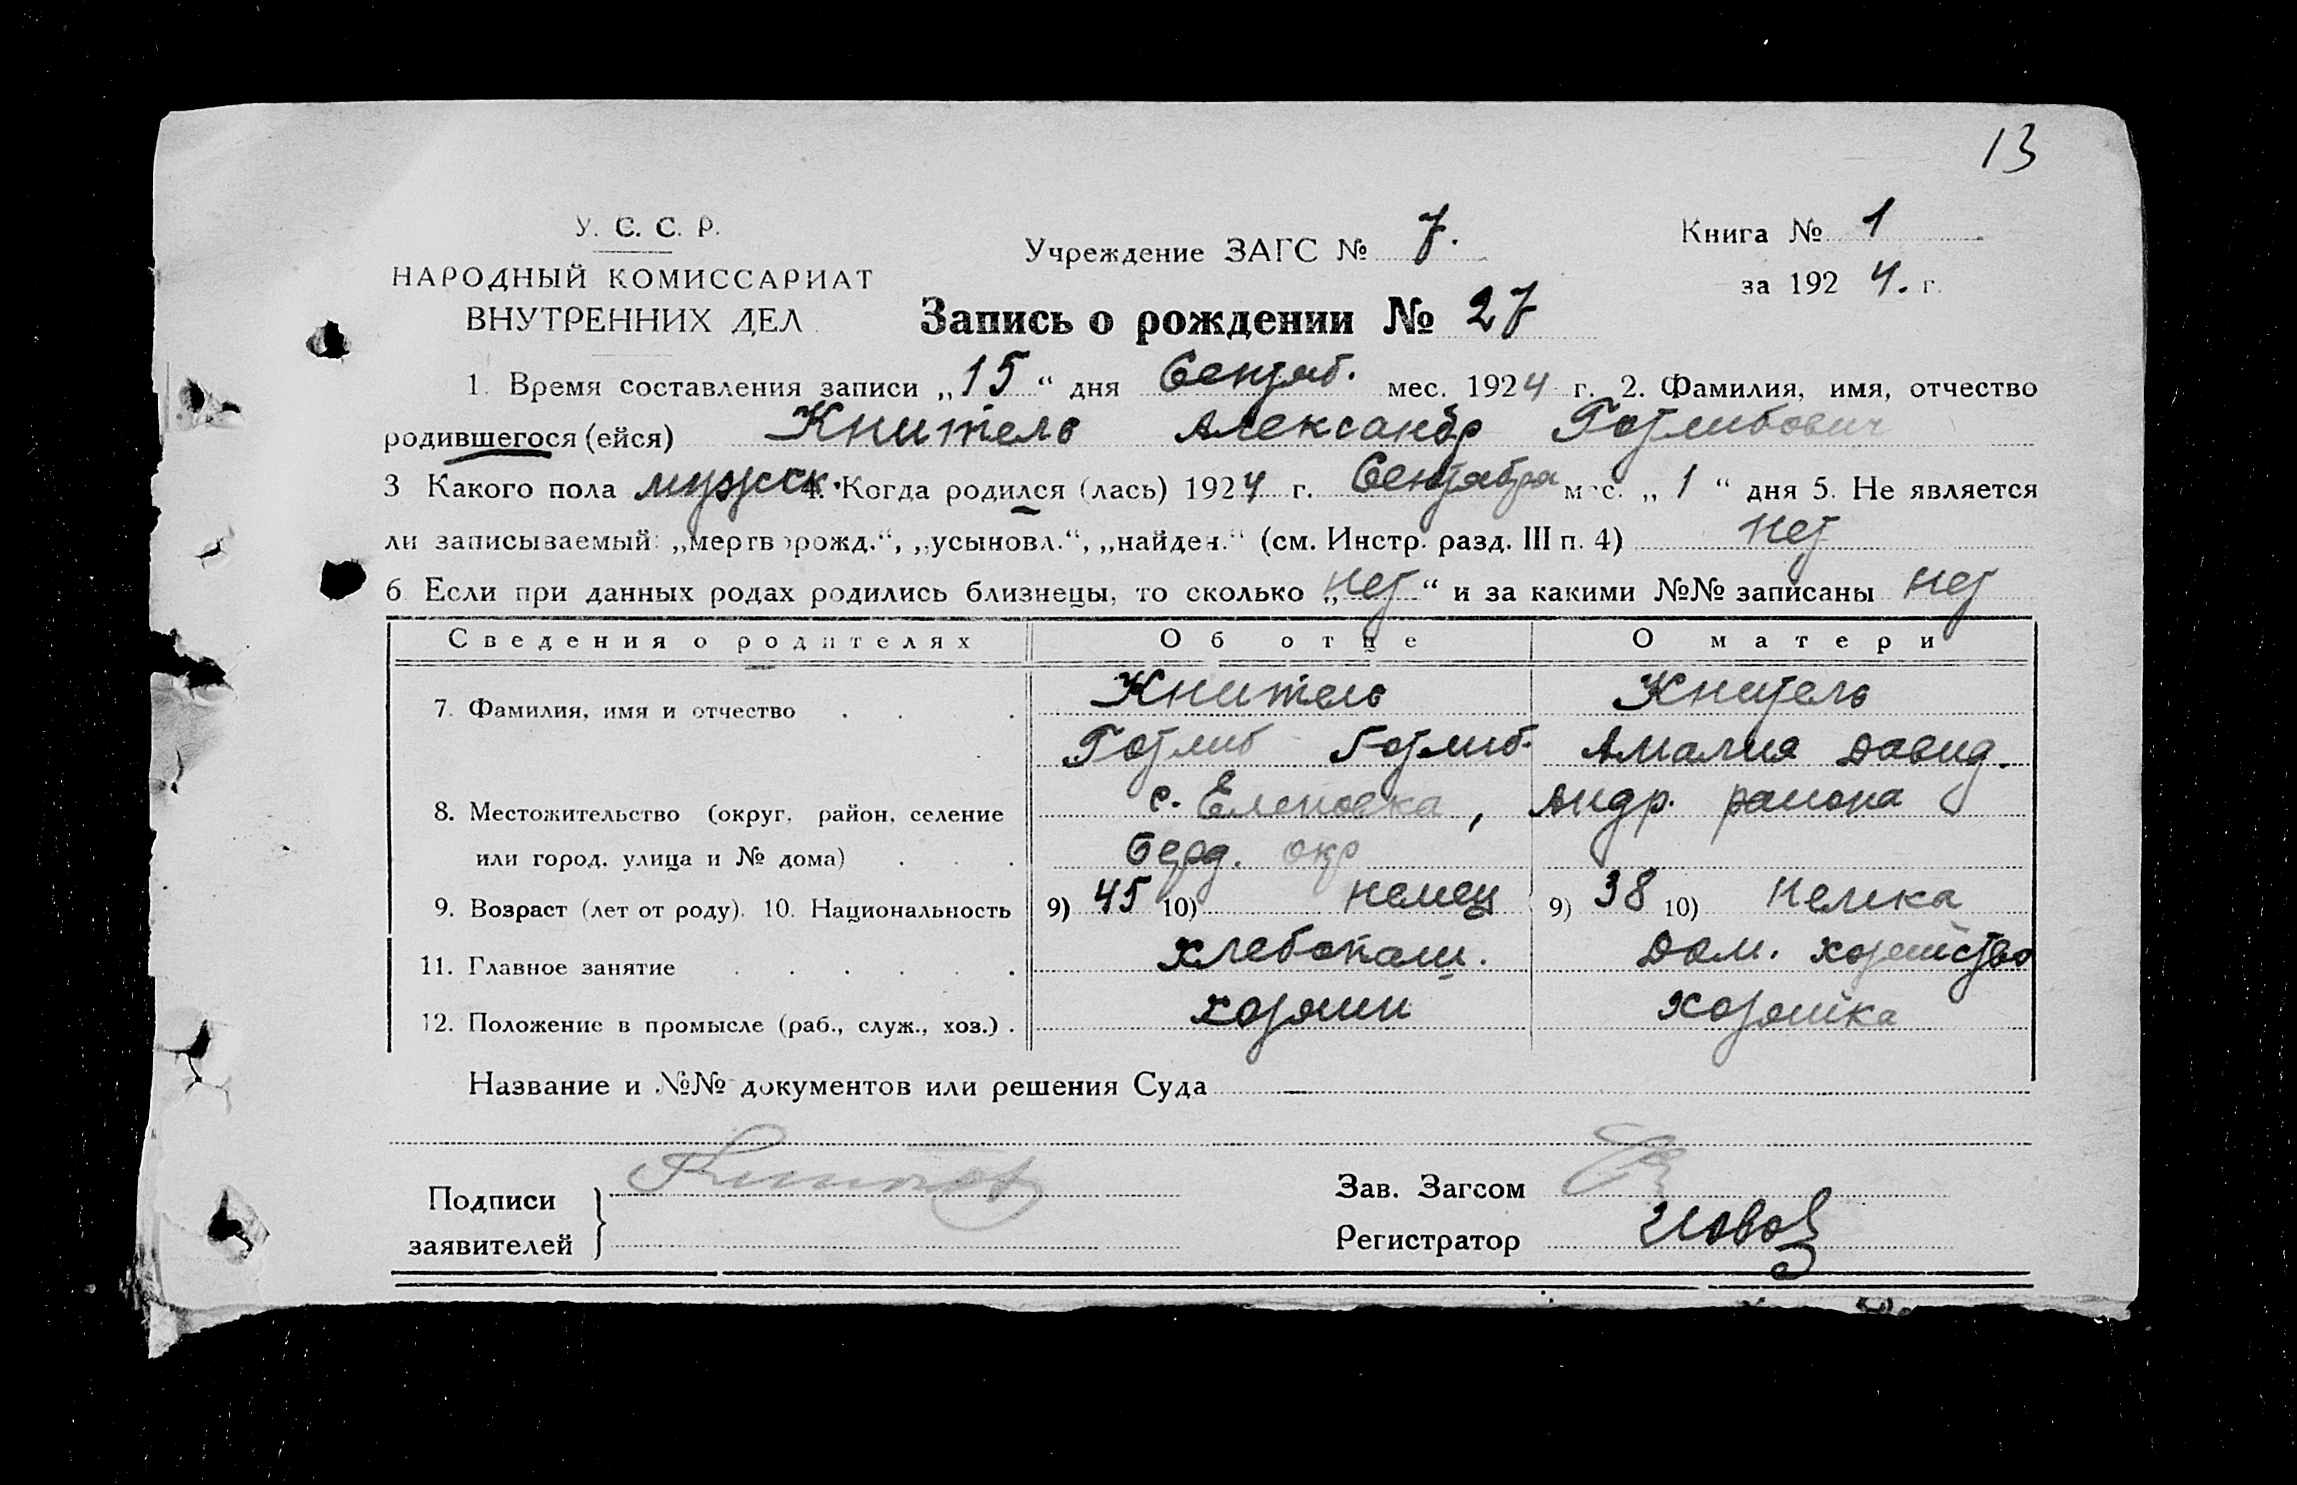 13
У. С. С. Р.
НАРОДНЫЙ КОМИССАРИАТ
ВНУТРЕННИХ ДЕЛ
Учреждение ЗАГС № 7.
Книга № 1
за 1924. г.
Запись о рождении № 27
1. Время составления записи „15“ дня Сентяб. мес. 1924 г. 2. Фамилия, имя, отчество
родившегося (ейся) Книтель Александр Готлибович
3 Какого пола мужск. 4. Когда родился (лась) 1924 г. Сентября мес. „1“ дня 5. Не является
ли записываемый: „мертворожд.“, „усыновл.“, „найден.“ (см. Инстр. разд. III п. 4) нет
6. Если при данных родах родились близнецы, то сколько „нет“ и за какими №№ записаны нет
Сведения о родителях Об отце О матери
7. Фамилия, имя и отчество . . . Книтель Книтель
Готлиб Готлиб. Амалия Давид.
8. Местожительство (округ, район, селение с. Еленовка, Андр. района
или город, улица и № дома) . . . Берд. окр
9. Возраст (лет от роду). 10. Национальность 9) 45 10) немец 9) 38 10) немка
11. Главное занятие . . . . . . Хлебопаш. Дом. хозяйство
12. Положение в промысле (раб., служ., хоз.) . хозяин Хозяйка
Название и №№ документов или решения Суда —
Подписи
заявителей
Зав. Загсом
Регистратор